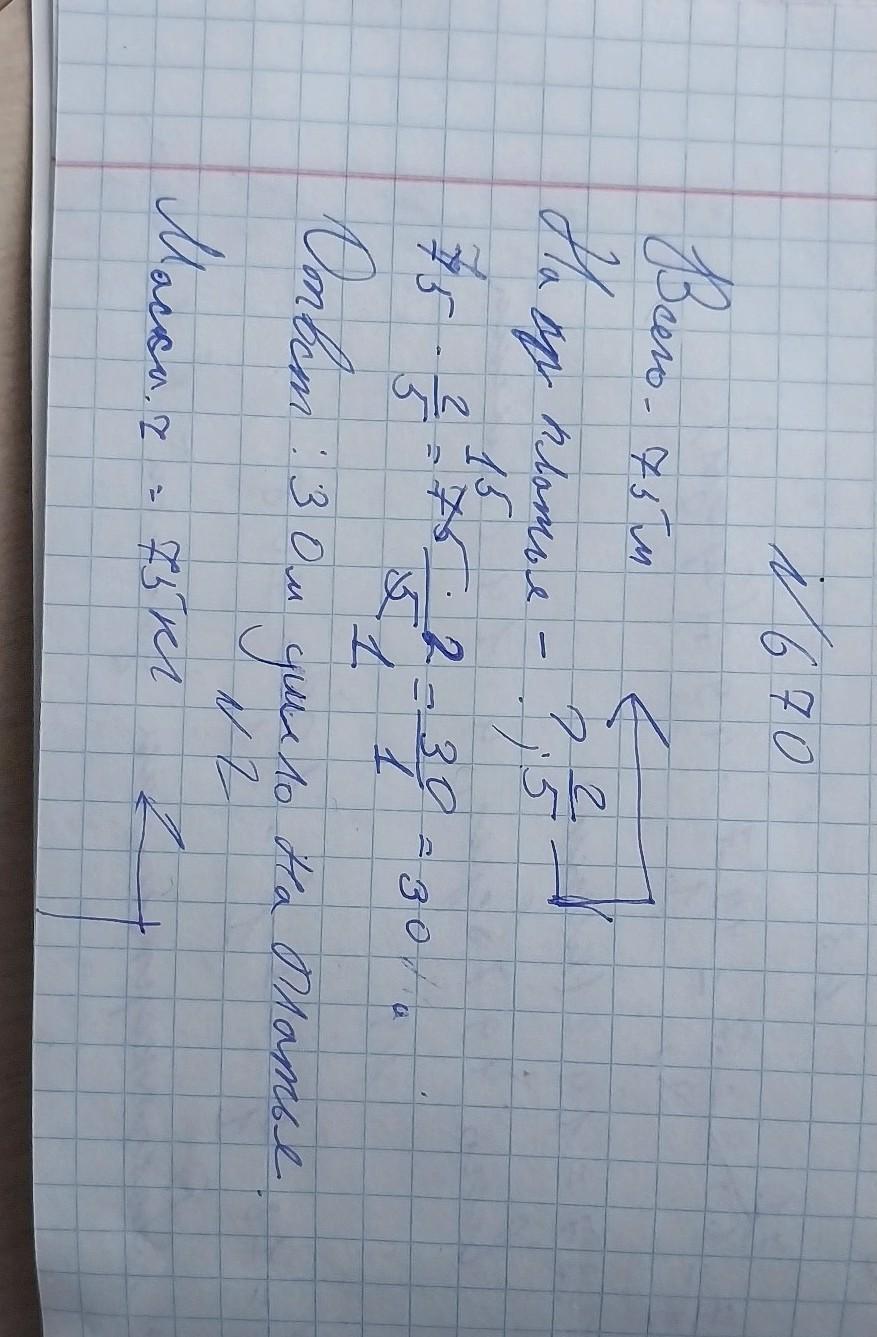 №670
Всего - 75 м
На плотье - ?, 2/5
75 · 2/5 = 75 · 2/5 = 30/1 = 30
15
1
Ответ: 30 м ушло на Платье
№2
= 75 кг